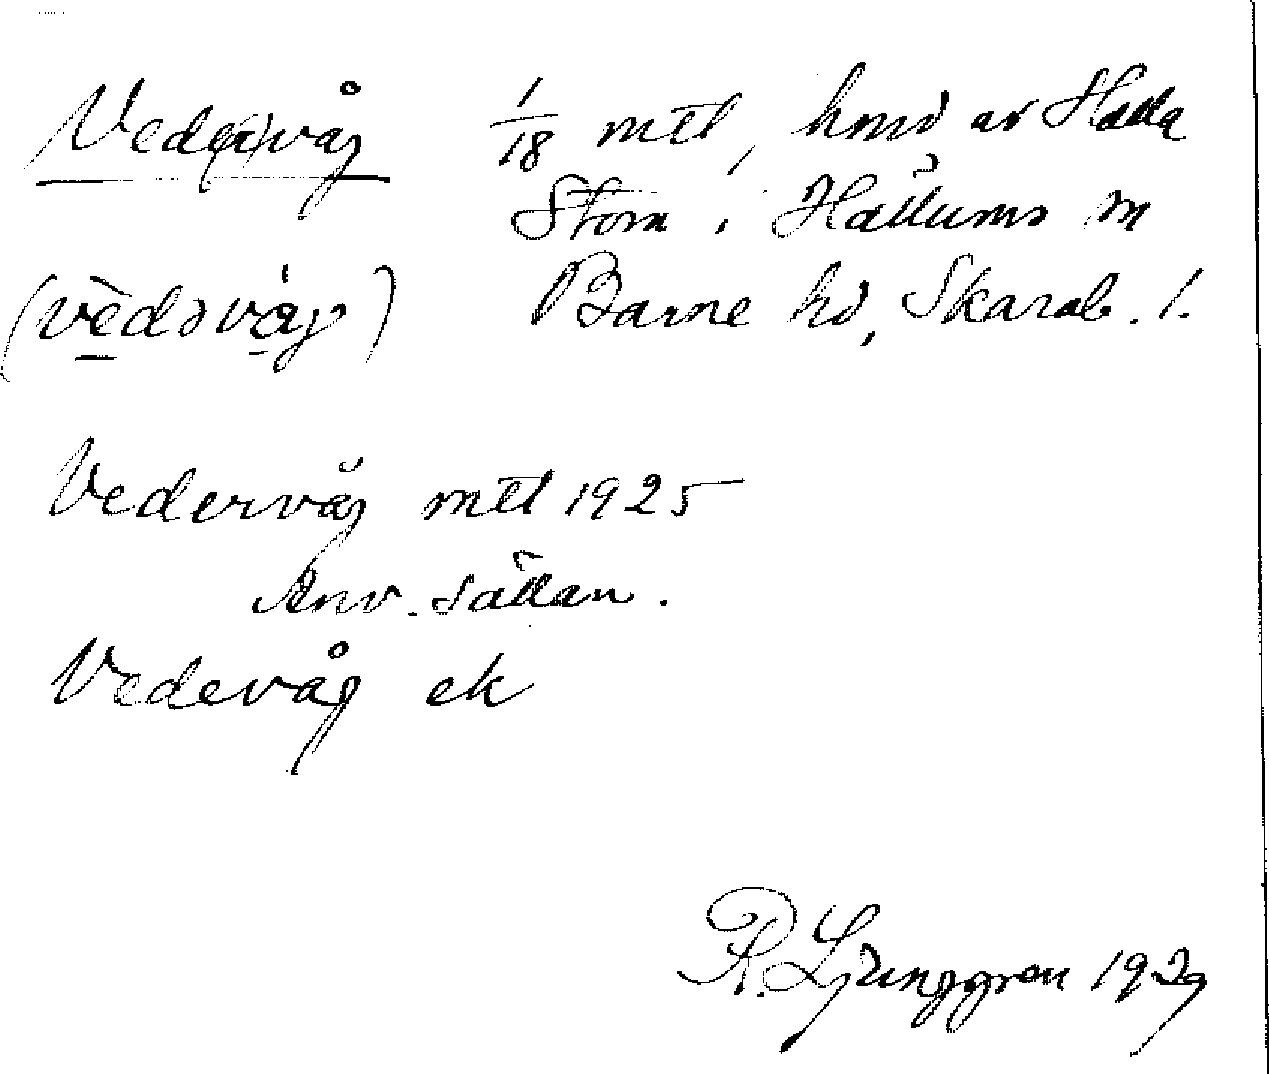 Ved(e)våg 1/18 mtl, hmd av Hälla
Stom i Hällums sn
(vedəvåg) Barne hd, Skarab. l.
Vedervåg mtl 1925
Anv. sällan.
Vedevåg ek
R. Ljunggren 1929